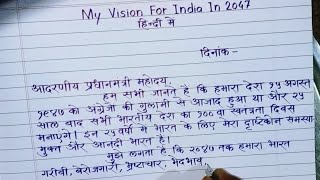 My Vision For India In 2047
हिन्दी मे
दिनांक-
आदरणीय प्रधानमन्त्री महोदय.
हम सभी जानते है कि हमारा देश १५ अगस्त
१९४७ को अंग्रेजो की गुलामी से आजाद हुआ था और २५
साल बाद सभी भारतीय देश का १०० वा स्वतंत्रता दिवस
मनाएगे। इन २५ वर्षो मे भारत के लिए मेरा दृष्टिकोन समस्या
मुक्त और आनन्दी भारत है।
मुझे लगता है कि २०४७ तक हमारा भारत
गरीबी, बेरोजगारी, भ्रष्टाचार, भेदभाव,